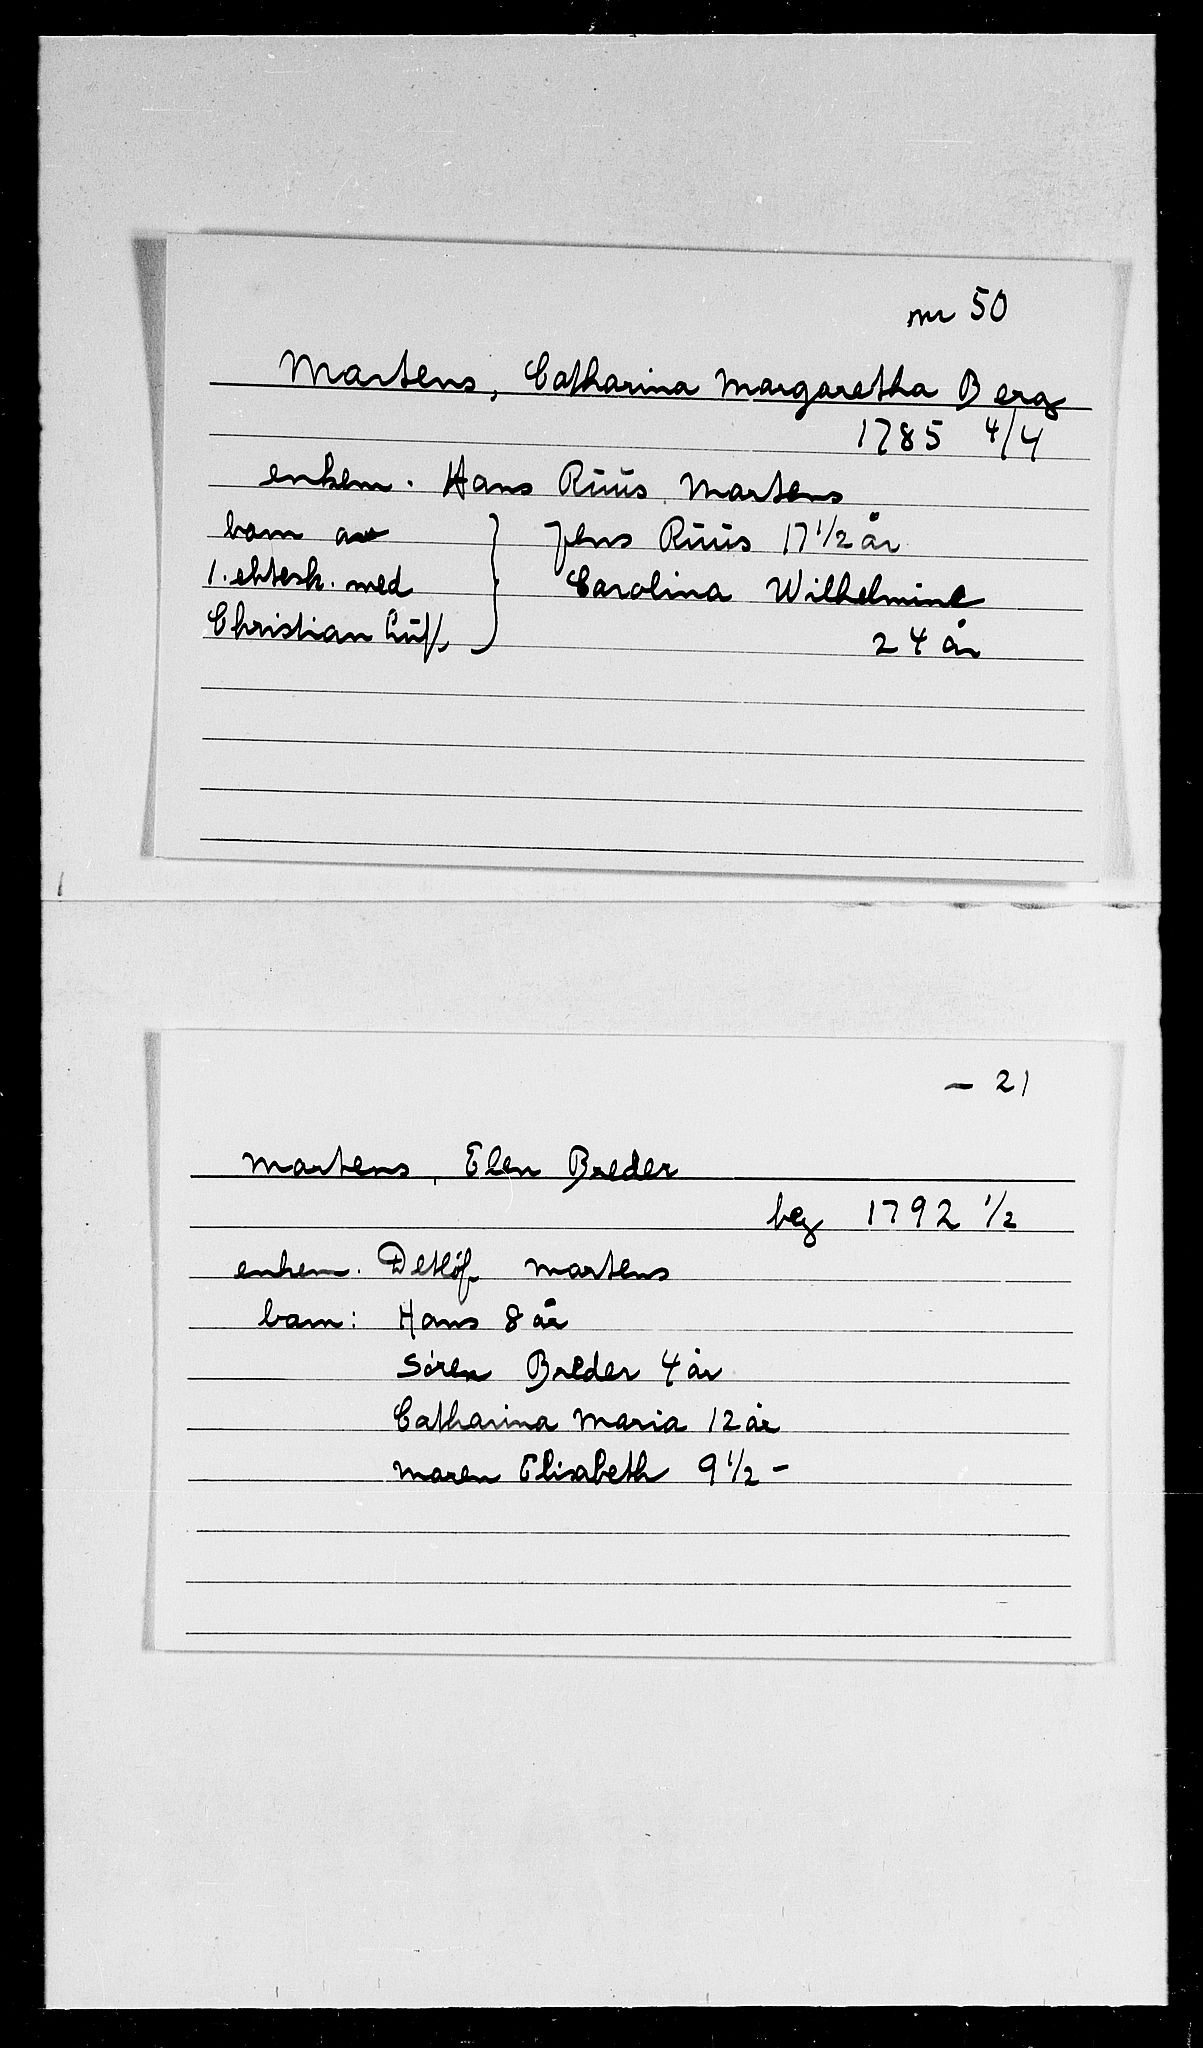 nr 50
Martens, Catharina Margaretha Berg
1785 4/4
enkem. Hans Rüüs Martens
barn av } Jens Rüüs 17 1/2 år
1. ektesk. med Carolina Wilhelmine
Christian 24 år
— 21
Martens, Elen Breder
beg 1792 1/2
enkem. Detlöf Martens
barn: Hans 8 år
Sören Breder 4 år
Catharina Maria 12 år
Maren Elisabeth 9 1/2 —